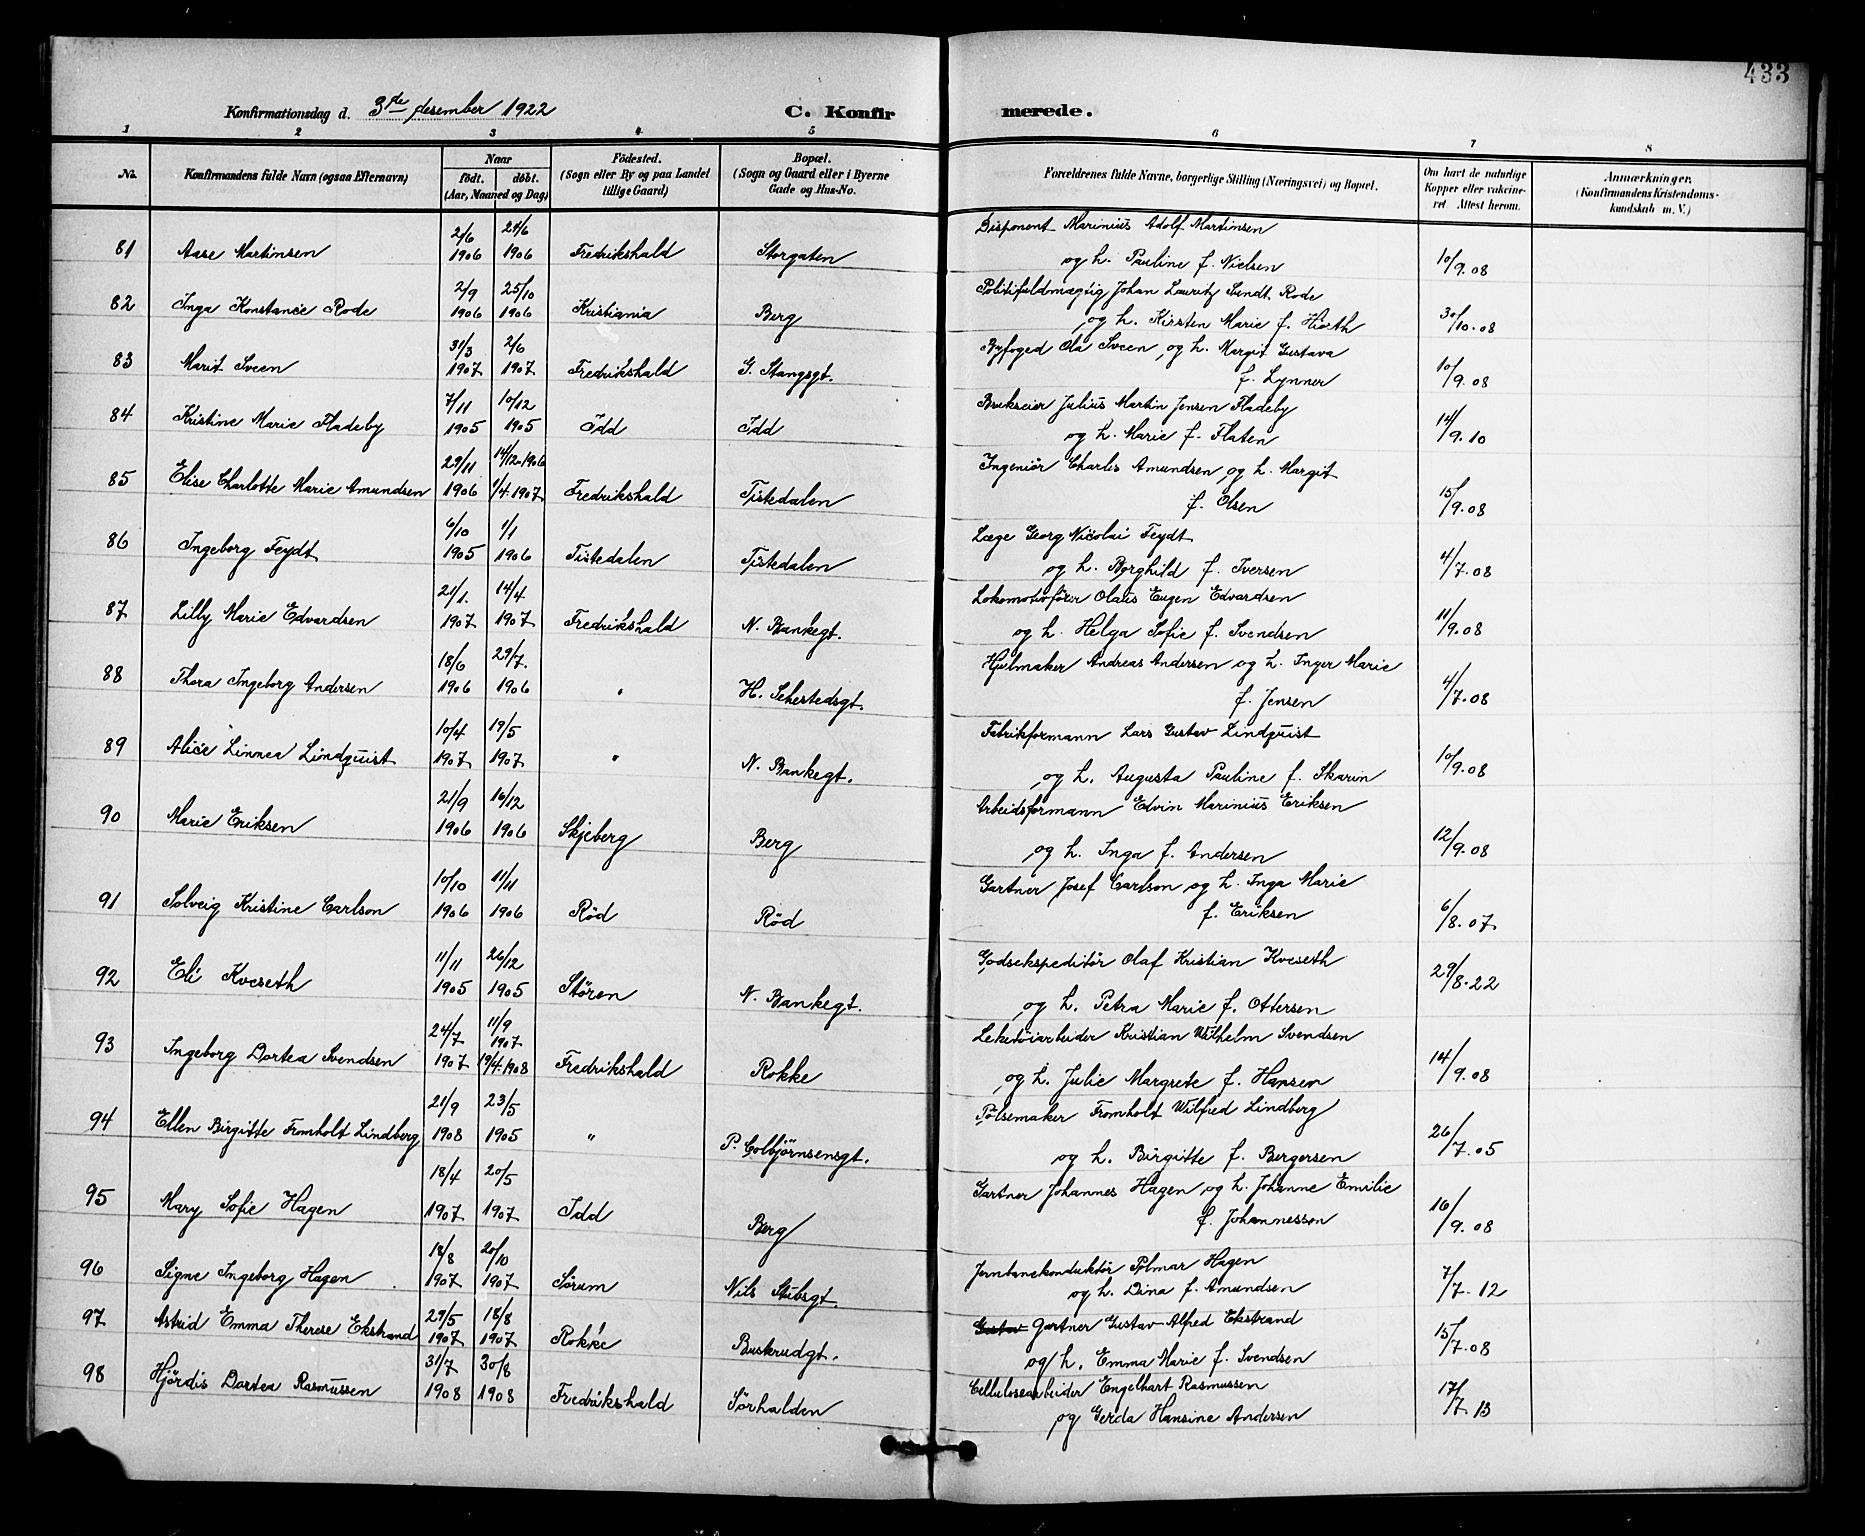 433
Konfirmationsdag d. 3die desember 1922 C. Konfirmerede.
1 2 3 4 5 6 7 8
No. Konfirmandens fulde Navn (ogsaa Efternavn) Naar født. døbt. (Aar, Maaned og Dag) Födested. (Sogn eller By og paa Landet tillige Gaard) Bopæl. (Sogn og Gaard eller i Byerne Gade og Hus-No. Forældrenes fulde Navne, borgerlige Stilling (Næringsvei) og Bopæl. Om havt de naturlige Kopper eller vakcineret. Attest herom. Anmærkninger, (Konfirmandens Kristendomskundskab m. V.)
2/6 24/6 Disponent Marinius Adolf Martinsen
81 Aase Martinsen 1906 1906 Fredrikshald Storgaten og h. Pauline f. Nielsen 10/9.08
2/9 25/10 Politifuldmægtig Johan Lauritz Sundt Rode
82 Inga Konstance Rode 1906 1906 Kristiania Berg og h. Kirsten Marie f. Hiorth 30/10.08
31/3 2/6 Byfoged Ola Sveen og h. Margit Gustava
83 Marit Sveen 1907 1907 Fredrikshald G. Stangsgt. f. Lynner 10/9.08
7/11 10/12 Brukseier Julius Martin Jensen Fladeby
84 Kristine Marie Fladeby 1905 1905 Idd Idd og h. Marie f. Flaten 14/9.10
29/11 14/12-1906 Ingeniør Charles Amundsen og h. Margit
85 Elise Charlotte Marie Amundsen 1906 1/4.1907 Fredrikshald Tistedalen f. Olsen 15/9.08
6/10 1/1 Læge Georg Nicolai Feydt
86 Ingeborg Feydt 1905 1906 Tistedalen Tistedalen og h. Borghild f. Iversen 4/7.08
21/1. 14/4 Lokomotivfører Olaus Eugen Edvardsen
87 Lilly Marie Edvardsen 1907 1907 Fredrikshald N. Bankegt. og h. Helga Sofie f. Svendsen 11/9.08
18/6 29/7. Hjulmaker Andreas Andersen og h. Inger Marie
88 Thora Ingeborg Andersen 1906 1906 " H. Sehestedsgt. f. Jensen 4/7.08
10/4 19/5 Fabrikformann Lars Gustav Lindquist
89 Alice Linnea Lindquist 1907 1907 " N. Bankegt. og h. Augusta Pauline f. Skarin 10/9.08
21/9 16/12 Arbeidsformann Edvin Marinius Eriksen
90 Marie Eriksen 1906 1906 Skjeberg Berg og h. Inga f. Andersen 12/9.08
10/10 11/11 Gartner Josef Carlson og h. Inga Marie
91 Solveig Kristine Carlson 1906 1906 Rød Rød f. Eriksen 6/8.07
11/11 26/12 Godsekspeditør Olaf Kristian Kveseth
92 Eli Kveseth 1905 1905 Støren N. Bankegt. og h. Petra Marie f. Ottersen 29/8.22
24/7 11/9 1907 Leketøiarbeider Kristian Wilhelm Svendsen
93 Ingeborg Dortea Svendsen 1907 19/4.1908 Fredrikshald Rokke og h. Julie Margrete f. Hansen 14/9.08
21/9 23/5 Pølsemaker Fromholt Wilfred Lindberg
94 Ellen Birgitte Fromholt Lindberg 1908 1905 " P. Colbjørnsensgt. og h. Birgitte f. Bergersen 26/7.05
18/4 20/5 Gartner Johannes Hagen og h. Johanne Emilie
95 Mary Sofie Hagen 1907 1907 Idd Berg f. Johannesson 16/9.08
18/8 20/10 Jernbanekonduktør Hjalmar Hagen
96 Signe Ingeborg Hagen 1907 1907 Sørum Nils Stubsgt. og h. Dina f. Amundsen 7/7-12
29/5 18/8 Gustav Gartner Gustav Alfred Ekstrand
97 Astrid Emma Therese Ekstrand 1907 1907 Rokke Buskrudgt. og h. Emma Marie f. Svendsen 15/7.08
31/7 30/8 Cellulosearbeider Engelhart Rasmussen
98 Hjørdis Dortea Rasmussen 1908 1908 Fredrikshald Sørhalden og Gerda Hansine Andersen 17/7 13